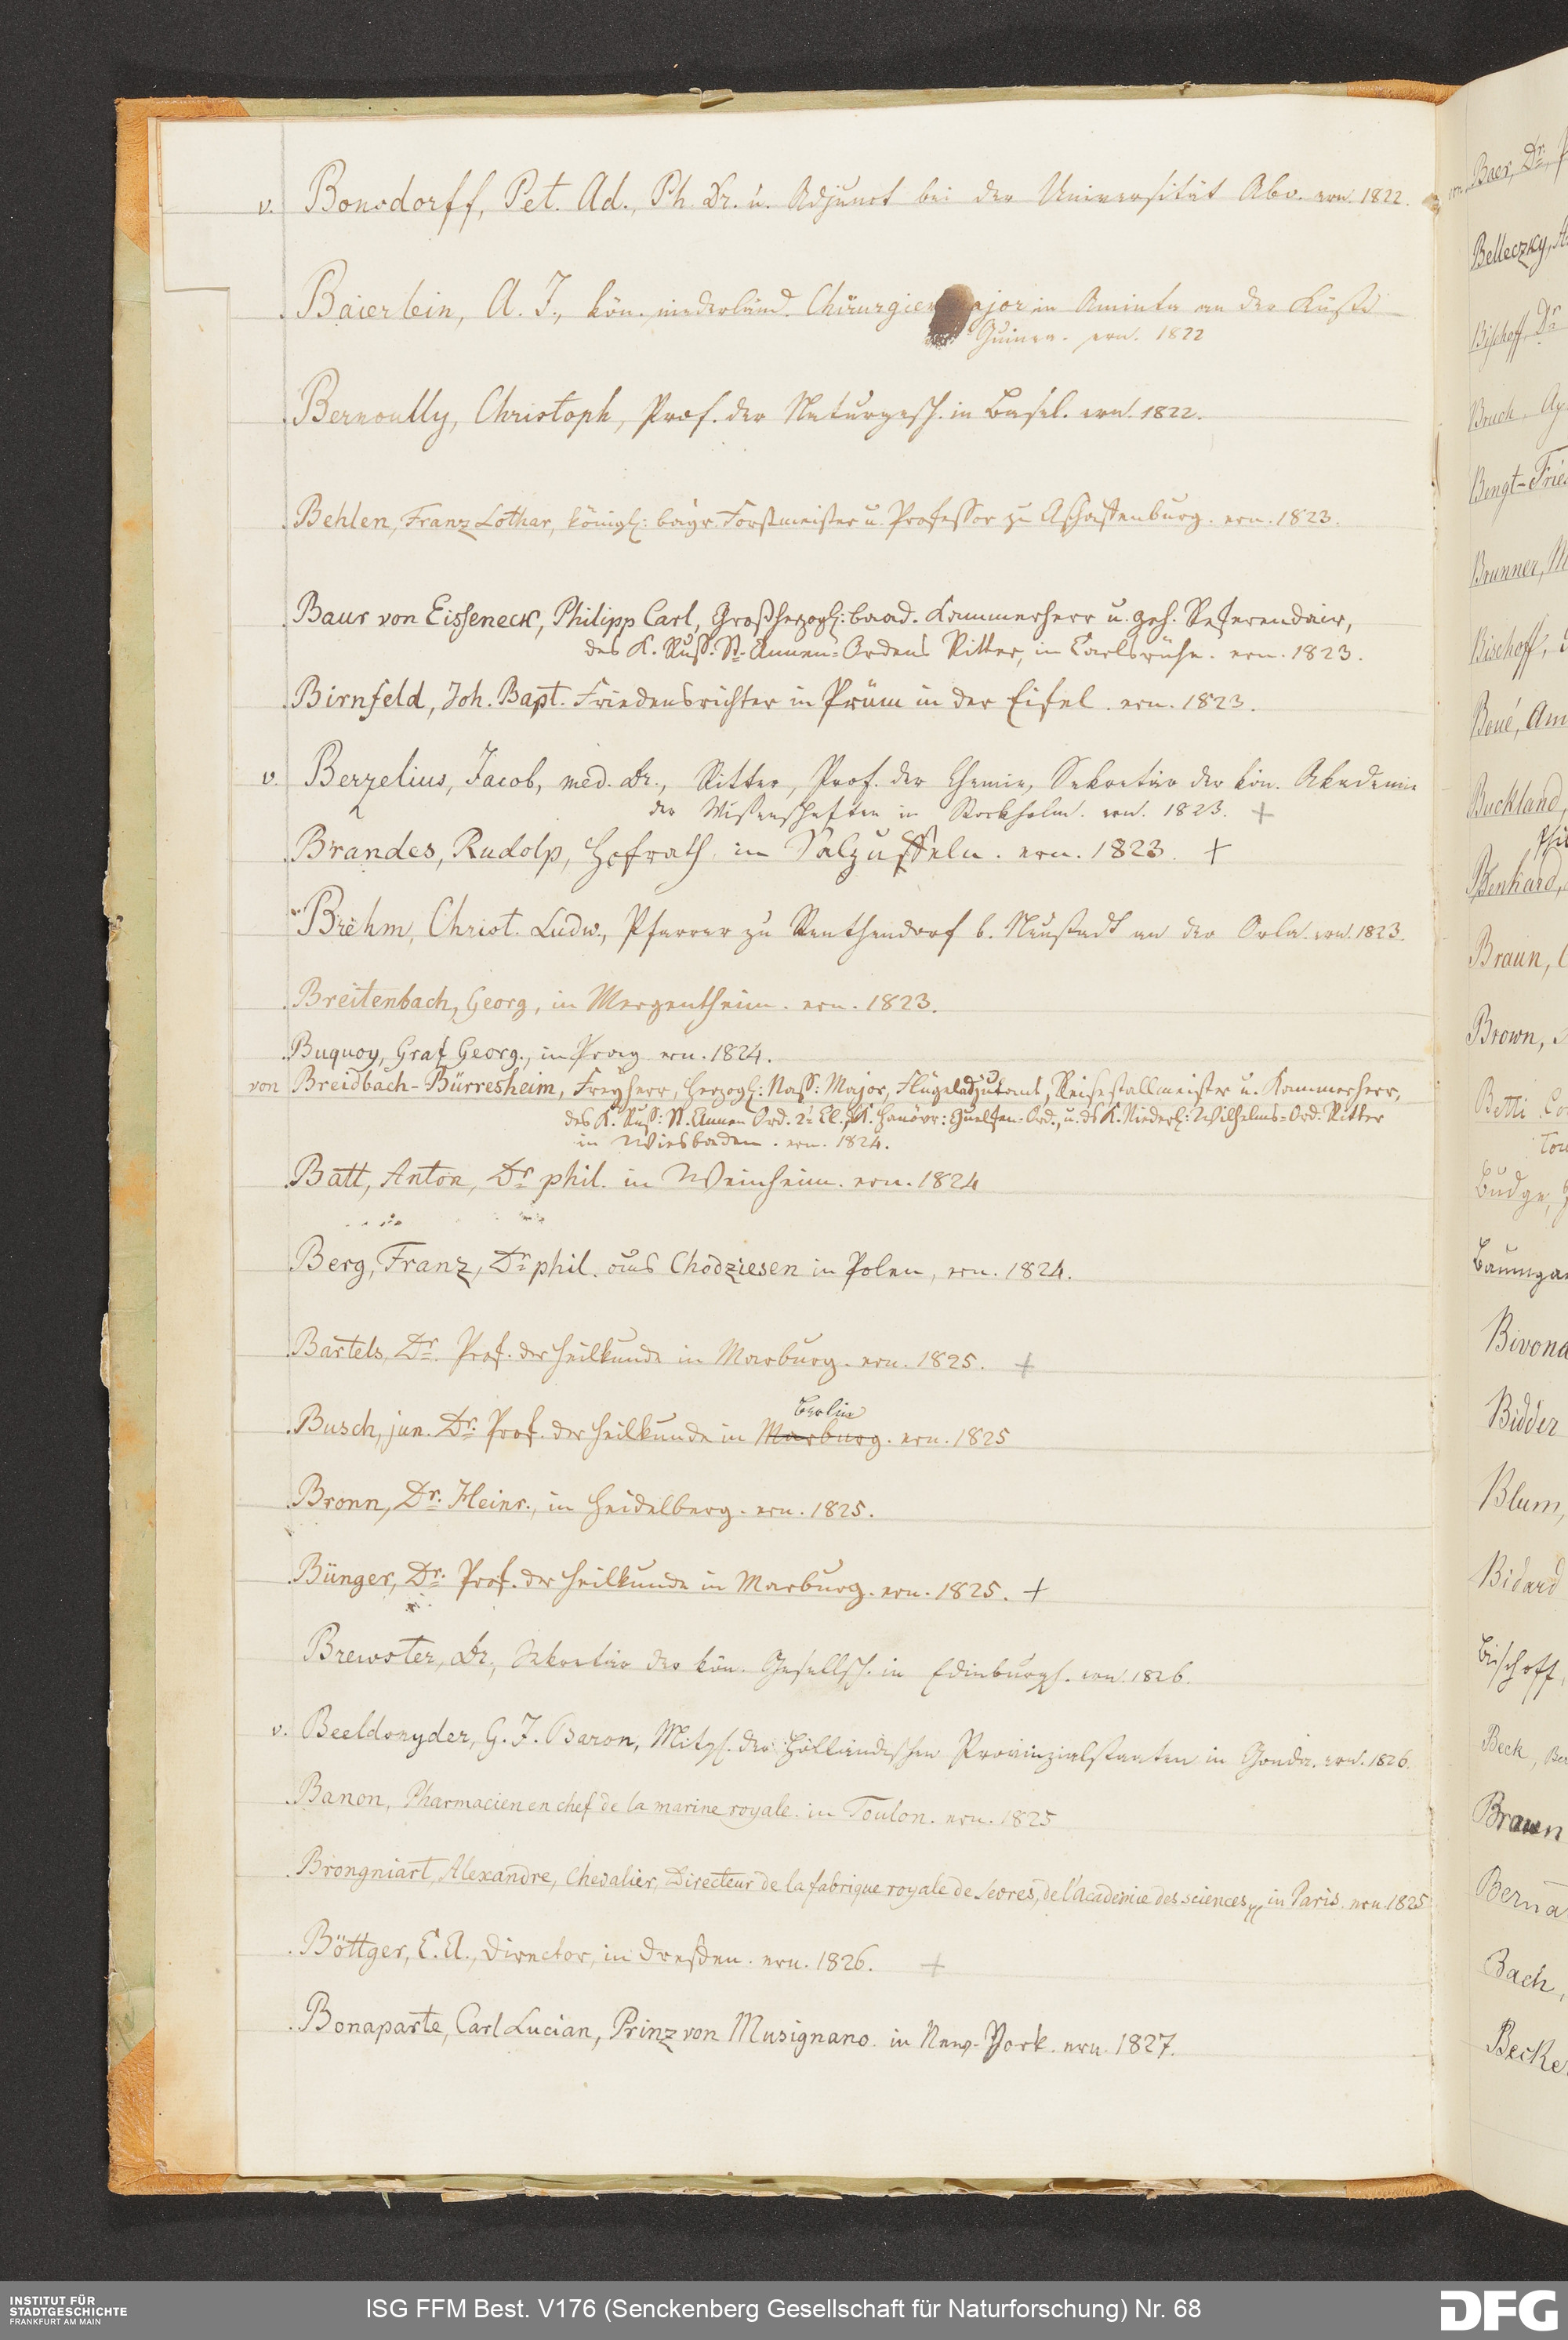 v. Bonsdorff, Pet. Ad., Ph. Dr. u. Adjunct bei der Universität Abo. ern. 1822.
Baierlein, A. J., kön. niederländ. Chirurgien major in Aminta an der Küste
Guinea. ern. 1822
Bernoully, Christoph, Prof. der Naturgesch. in Basel. ern. 1822.
Behlen, Franz Lothar, königl: bayr. Forstmeister u. Professor zu Aschaffenburg. ern. 1823.
Baur von Eisseneck, Philipp Carl, Großherzogl: baad. Kammerherr u. geh. Referendair,
des K. Russ. St. Annen-Ordens Ritter, in Carlsruhe. ern. 1823.
Birnfeld, Joh. Bapt. Friedensrichter in Prüm in der Eifel. ern. 1823.
v. Berzelius, Jacob, med. Dr., Ritter, Prof. der Chemie, Sekretär der kön. Akademie
der Wissenschaften in Stockholm. ern. 1823. +
Brandes, Rudolp, Hofrath in Salzuffeln. ern. 1823. +
Brehm, Christ. Ludw., Pfarrer zu Renthendorf b. Neustadt an der Orla. ern. 1823.
Breitenbach, Georg, in Mergentheim. ern. 1823.
Buquoy, Graf Georg., in Prag ern. 1824.
von Breidbach-Bürresheim, Freyherr, Herzogl: Nass: Major, Flügeladjutant, Reisestallmeister u. Kammerherr,
des K. Russ: St. Annen Ord. 2r Cl., K. Hanövr: Guelfen-Ord., u. ds K. Niederl: Wilhelms-Ord. Ritter
in Wiesbaden. ern. 1824.
Batt, Anton, Dr phil. in Weinheim. ern. 1824
Berg, Franz, Dr phil. aus Chodziesen in Polen, ern. 1824.
Bartels, Dr. Prof. der Heilkunde in Marburg. ern. 1825. +
Berlin
Busch, jun. Dr. Prof. der Heilkunde in Marburg. ern. 1825
Bronn, Dr. Heinr., in Heidelberg. ern. 1825.
Bünger, Dr. Prof. der Heilkunde in Marburg. ern. 1825. +
Brewster, Dr., Sekretär der kön. Gesellsch. in Edinburgh. ern. 1826.
v. Beeldsnyder, G. J. Baron, Mitgl. der Holländischen Provinzialstaaten in Gouda. ern. 1826.
Banon, Pharmacien en chef de la marine royale. in Toulon. ern. 1825
Brongniart, Alexandre, Chevalier, Directeur de la fabrique royale de Sevres, de l'academie des sciences in Paris. ern. 1825
Böttger, C. A., Director, in Dresden. ern. 1826. +
Bonaparte, Carl Lucian, Prinz von Musignano. in New-York. ern. 1827.
Baer, Dr.
Belleczky,
Bischoff, Dr
Bruch
Bengt-Fries
Brunner,
Bischoff,
Boué, Am
Buckland,
Braun,
Brown,
Betti
Budge,
Baumgar
Bivona
Bidder
Blum,
Bidard
Bischoff,
Beck,
Braun
Berna
Bach,
Becke
INSTITUT FÜR
STADTGESCHICHTE
FRANKFURT AM MAIN
ISG FFM Best. V176 (Senckenberg Gesellschaft für Naturforschung) Nr. 68
DFG